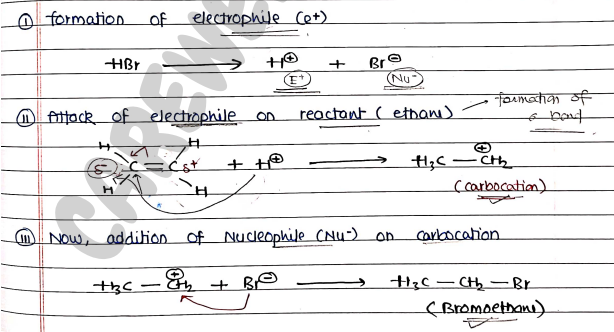 (i) formation of electrophile (e+)
HBr ⟶ H⊕ + Br⊖
(E+) (Nu-)
(ii) Attack of electrophile on reactant (ethane) → formation of
σ bond
H H
δ- C = C δ+ + H⊕ ⟶ H3C — C⊕H2
H H (carbocation)
(iii) Now, addition of Nucleophile (Nu-) on carbocation
H3C — C⊕H2 + Br⊖ ⟶ H3C — CH2 — Br
(Bromoethane)
CAREWE